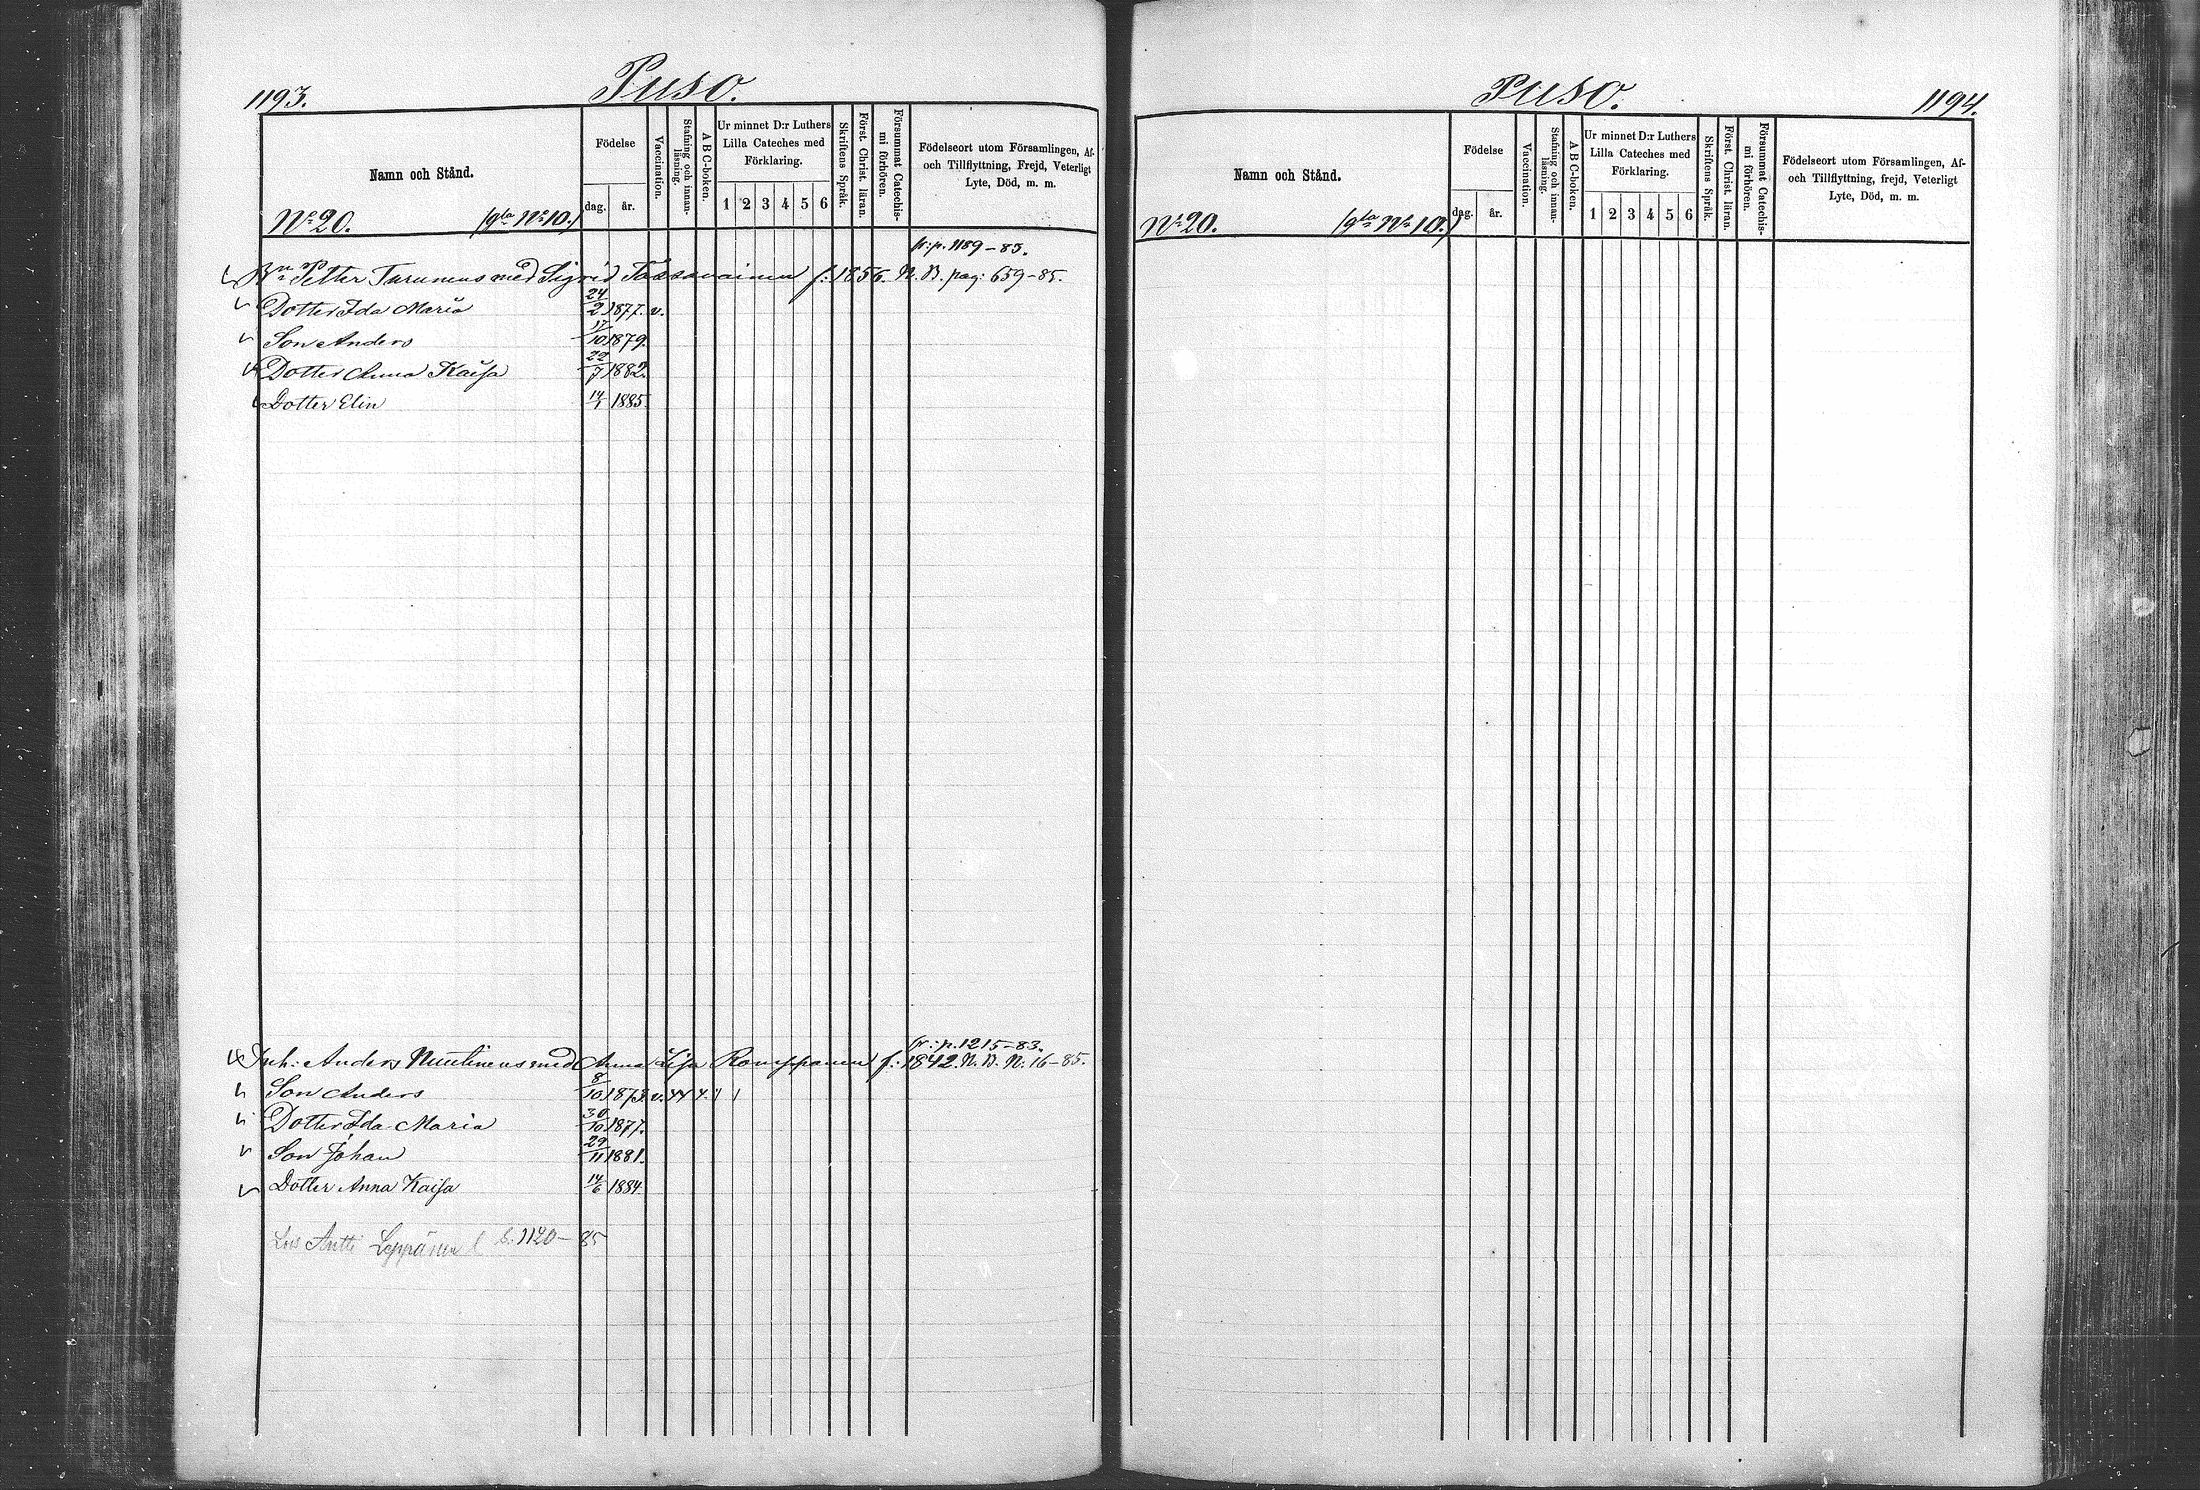 1193.
Puso.
Namn och Stånd.
Födelse
dag. år.
Vaccination.
Stafning och innanläsning.
A B C-boken.
Ur minnet D:r Luthers
Lilla Cateches med
Förklaring.
1 2 3 4 5 6
Skriftens Språk.
Först. Christ. läran.
Försummat Catechismi förhören.
Födelseort utom Församlingen, Af-
och Tillflyttning, Frejd, Veterligt
Lyte, Död, m. m.
No 20. (gla No 10.)
fr: p. 1189-85.
Petter Turunens med Sigrid f. 1856. N. B. pag: 659-85.
Dotter Ida Maria 24/2 1877. v.
Son Anders 17/10 1879.
Dotter Anna Kaisa 22/7 1882.
Dotter Elin 14/1 1885.
fr: p. 1215-83.
Inh: Anders Nuutinens med Anna Lisa Romppanen f: 1842. N. B. N: 16-85.
Son Anders 8/10 1873. v.
Dotter Ida Maria 30/10 1877.
Son Johan 29/11 1881.
Dotter Anna Kaisa 14/6 1884.
Lois Antti Leppänen S: 1120-85
Puso.
1194.
Namn och Stånd.
Födelse
dag. år.
Vaccination.
Stafning och innanläsning.
A B C-boken.
Ur minnet D:r Luthers
Lilla Cateches med
Förklaring.
1 2 3 4 5 6
Skriftens Språk.
Först. Christ. läran.
Försummat Catechismi förhören.
Födelseort utom Församlingen, Af-
och Tillflyttning, frejd, Veterligt
Lyte, Död, m. m.
No 20. (gla No 10.)